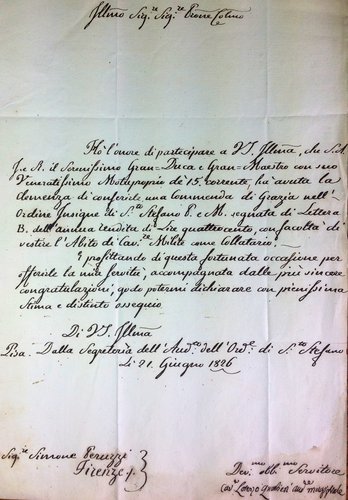 Illmo Sig.re Sig.re Prone Colmo
Ho l'onore di partecipare a VS. Illma, che S. A.
I. e R. il Serenissimo Gran-Duca e Gran-Maestro con suo
Veneratissimo Motuproprio de' 15. corrente, ha avuta la
clemenza di conferirle una Commenda di Grazia nell'
Ordine Insigne di S.to Stefano P. e M. segnata di Lettera
B. dell'annua rendita di Lire quattrocento, con facoltà di
vestire l'Abito di Cav.re Milite come Collatario.
E profittando di questa fortunata occasione per
offerirle la mia servitù, accompagnata dalle più sincere
congratulazioni, godo potermi dichiarare con pienissima
stima e distinto ossequio
Di VS. Illma
Pisa. Dalla Segreteria dell'Aud.to dell'Ord.e di S.to Stefano
Li 21. Giugno 1826
Sig.re Simone Peruzzi
Firenze
Dev.mo obb.mo Servitore
Cav.